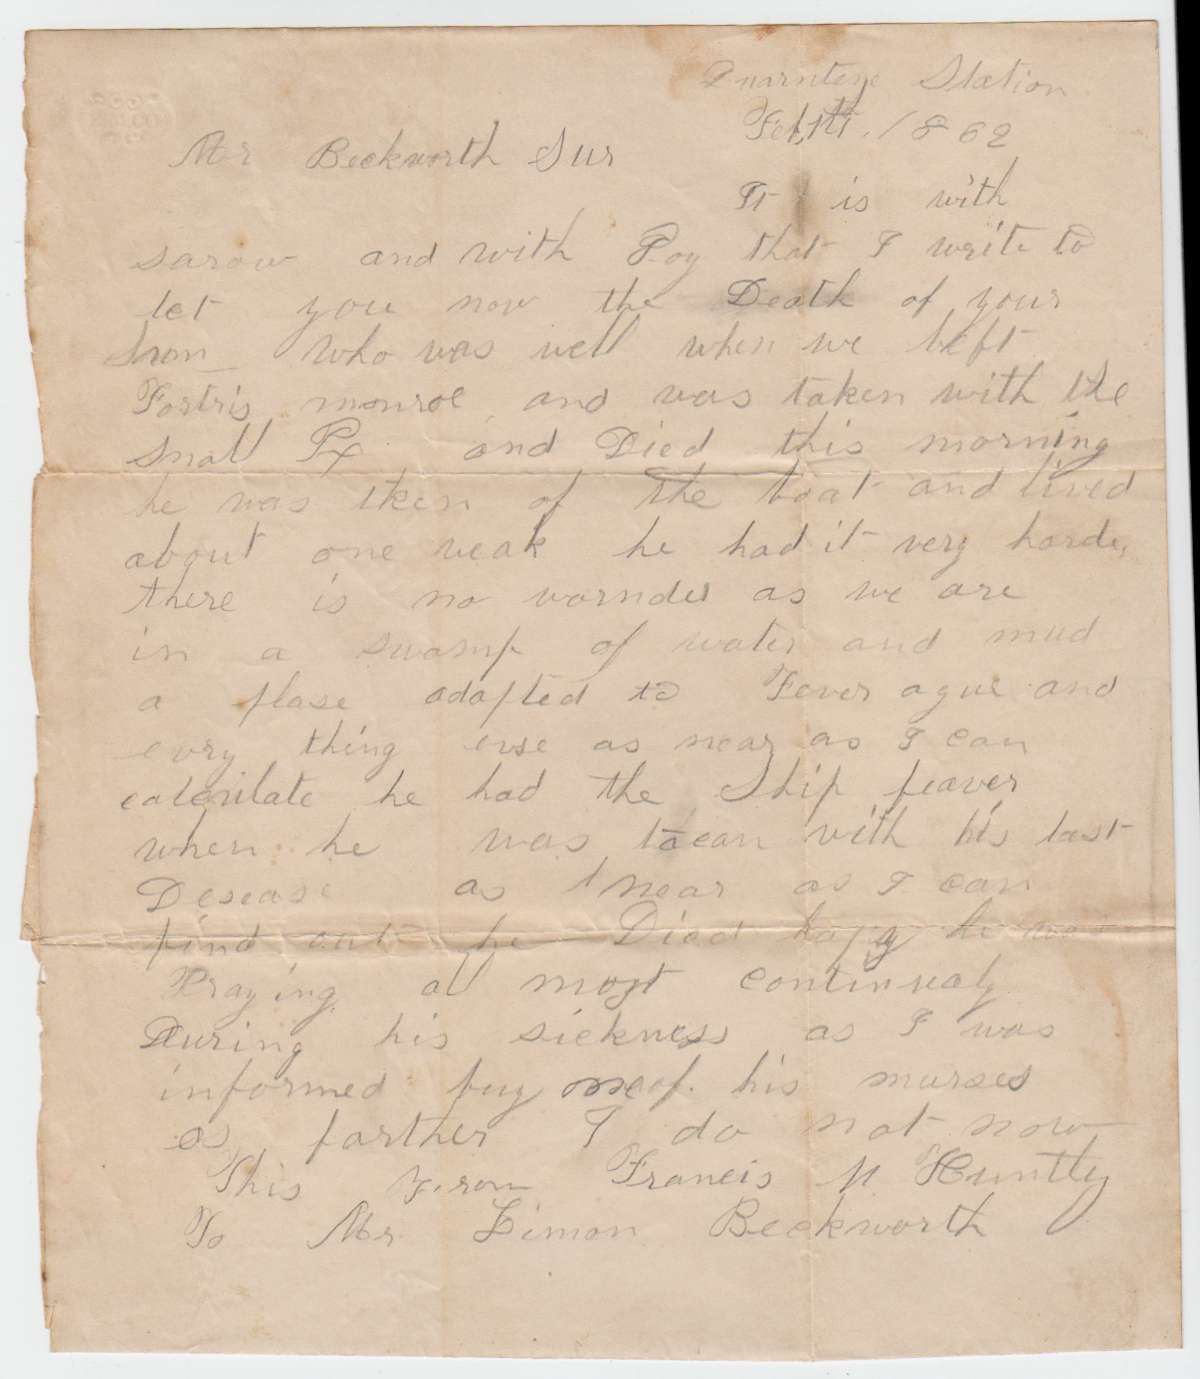 Station
Feb, 1862
Mr Beckworth Sur
It is with
sarow and with Poy that I write to
let you now the Death of your
who was well when we left
Fortris monroe and was taken with the
small Px and Died this morning
he was tken of the boat and lived
about one weak he had it very harde,
there is no as we are
in a swamp of water and mud
a plase adapted to Fever ague and
evry thing erse as near as I can
calculate he had the Ship feaver
when he was with his last
Desease as near as I can
find out he Died happy he was
Praying al most continualy
During his sickness as I was
informed buy one of his nurses
as farther I do not now
This From Francis M Huntly
To Mr Simon Beckworth